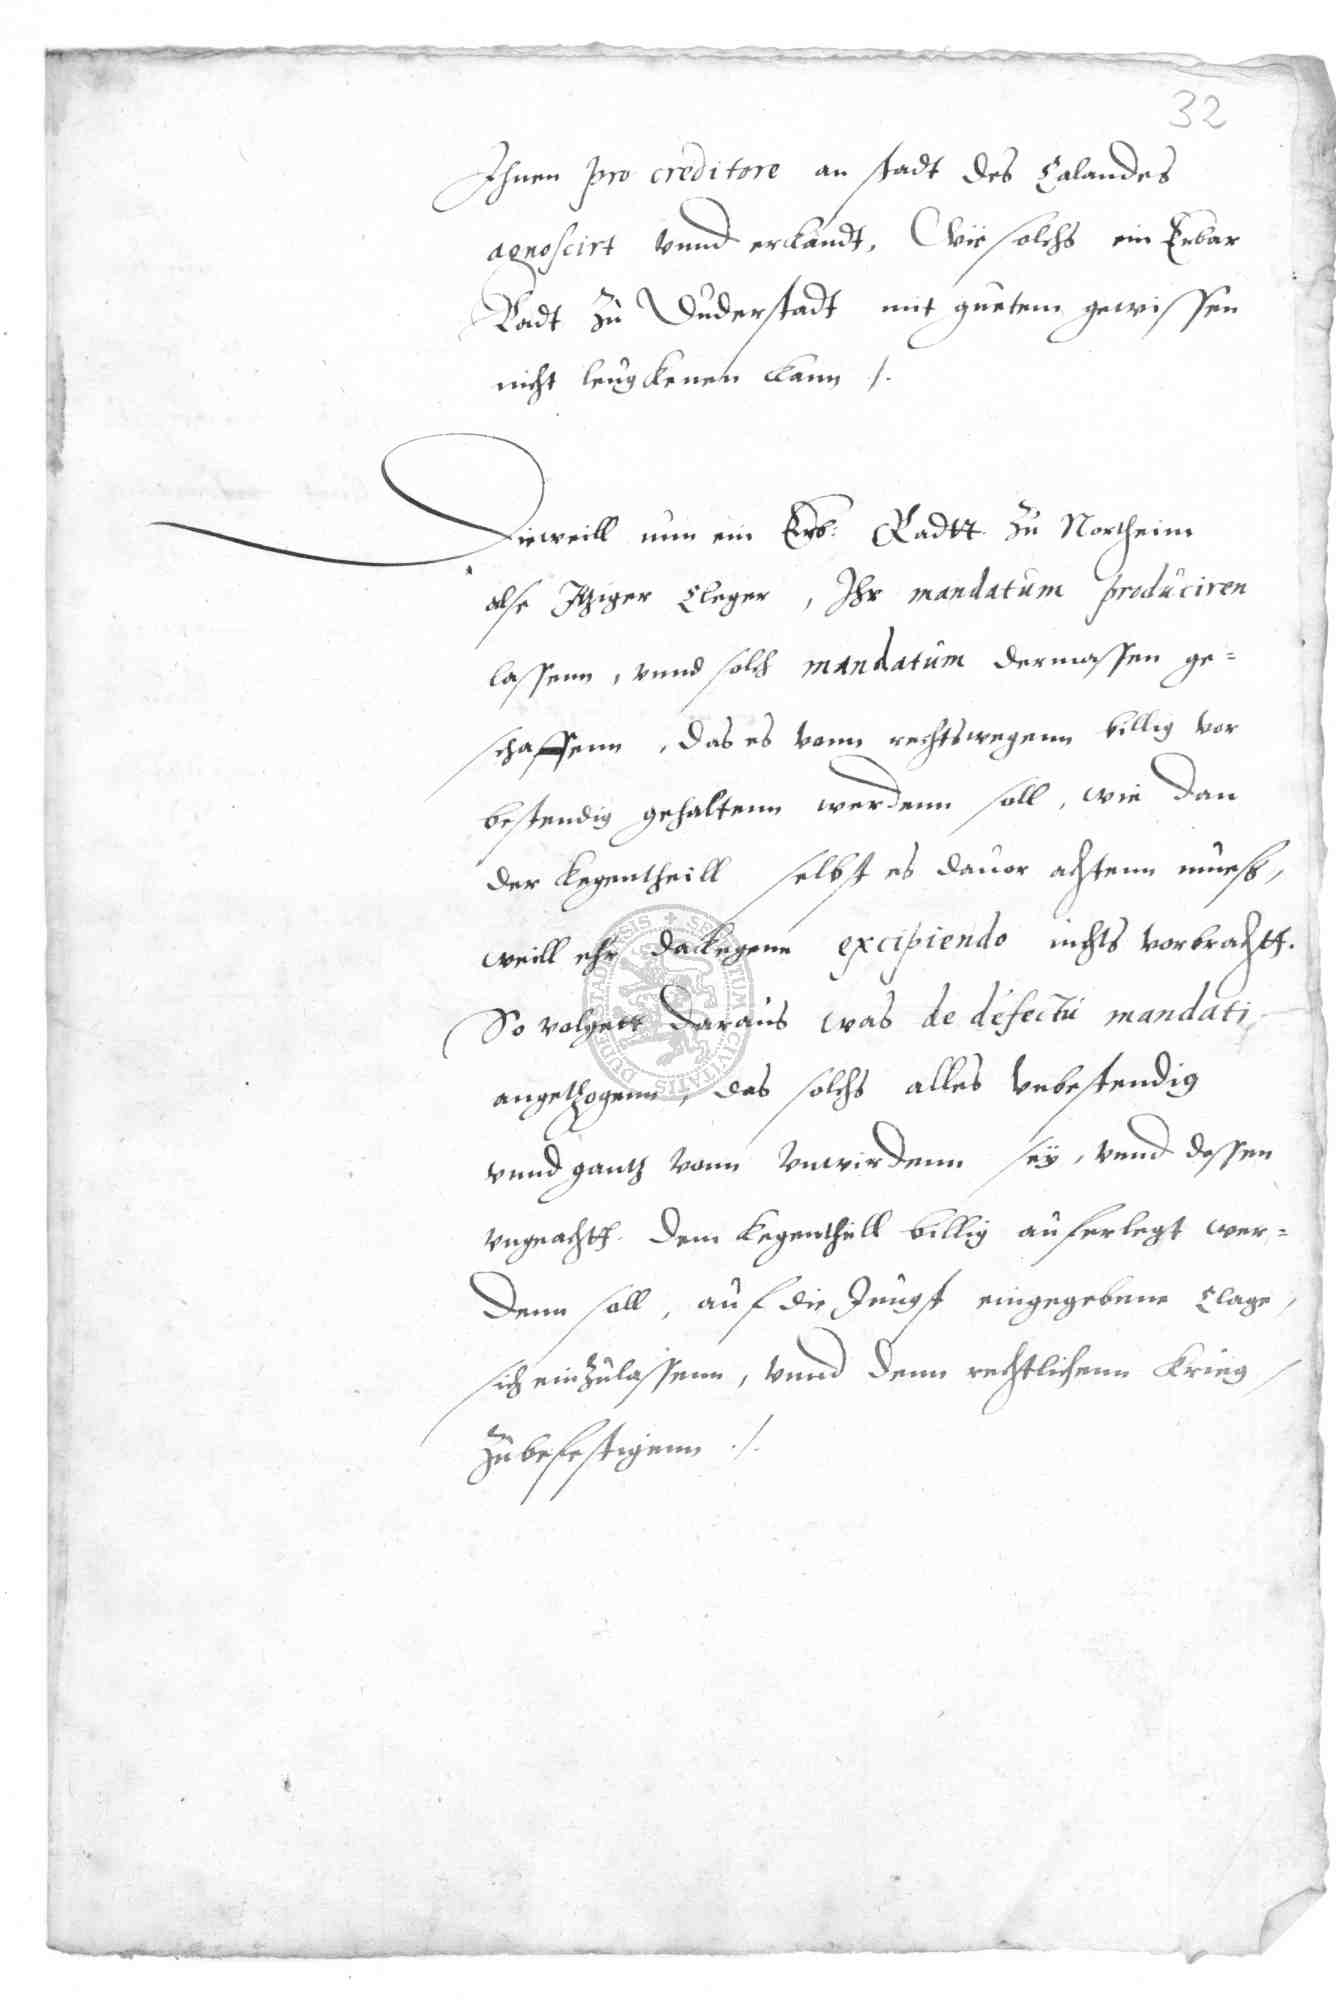 32
Ihnen pro creditore an stadt des Calandes
agnoscirt vnnd erkandt, Wie solchs ein Erbar
Radt zu Duderstadt mit guetem gewissen
nicht leugkenen kann /.
Dieweill nun ein Erb: Radtt zu Northeim
alse Itziger Cleger, Ihr mandatum produciren
lassenn, vnnd solch mandatum dermassen ge=
schaffenn, das es vonn rechtswegenn billig vor
bestendig gehaltenn werdenn soll, wie dan
der kegentheill selbst es dauor achtenn mueß,
weill ehr dakegenn excipiendo nichts vorbrachtt.
So volgett daraus was de defectu mandati
angetzogenn, das solchs alles vnbestendig
vnnd gantz vonn vnwirdenn seÿ, vnnd dessen
vngeachtt dem kegentheill billig auferlegt wer=
denn soll, auf die Jungst eingegebene Clage,
sich einzulassenn, vnnd denn rechtlichenn krieg
zubefestigenn ./.
DUDERSTADENSIS ✠ SECRETUM CIVITATIS